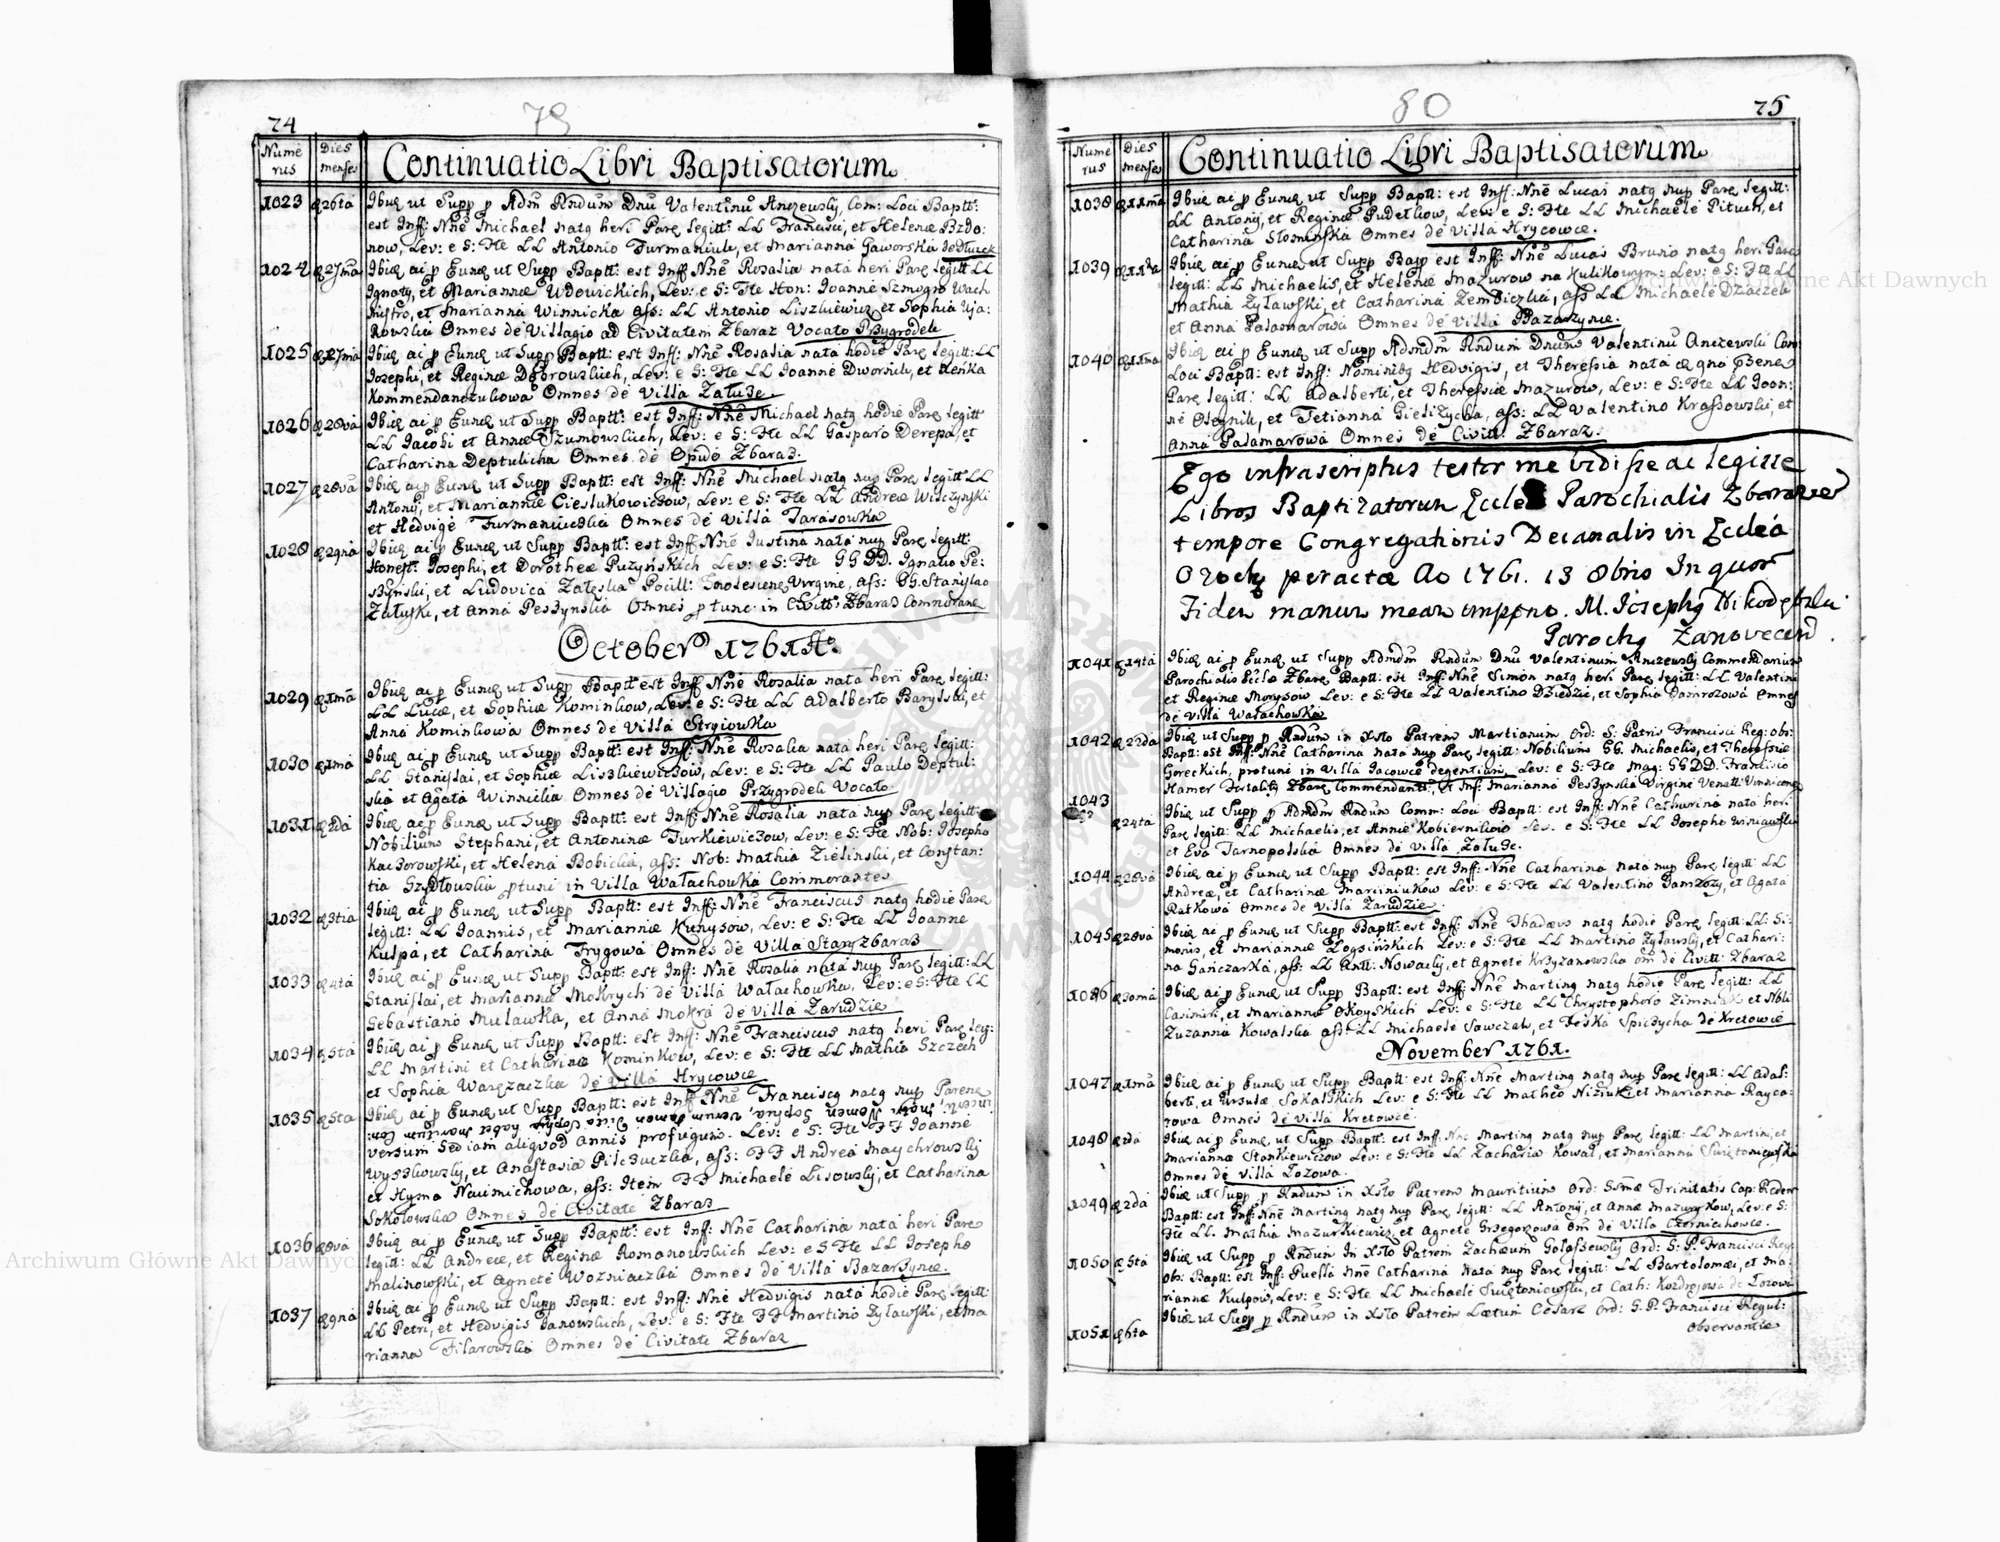 74
79
Nume
rus
Dies
menses
Continuatio Libri Baptisatorum
1023 26ta Ibidē ut Supp p Adm̃ Rndum Dnū Valentinū Anczewsky, Com: Loci Baptt:
est Inff: Nn̄e Michael natq heri Parē legitt: LL Francisci, et Helenæ Bzdo:
now, Lev: e S: Fte LL Antonio Furmaniuk, et Marianna Gaworska de
1024 27ma Ibidē ai p Eundē ut Supp Baptt: est Inff Nn̄e Rosalia nata heri Parē legitt LL
Ignaty, et Mariannæ Udowickich, Lev: e S: Fte Hon: Joanne Szmogro Wach
mistro, et Marianna Winnicka ass: LL Antonio Liszkiewicz et Sophia Uja:
Rowska Omnes de Villagio ad Civitatem Zbaraz Vocato Przygrodek
1025 27ma Ibidē ai p Eundē ut Supp Baptt: est Inff: Nn̄e Rosalia nata hodie Parē legitt: LL
Josephi, et Reginæ Dobrowskich, Lev: e S: Fte LL Joanne Dwornik, et Lenka
Kommendanczukowa Omnes de Villa Załuże
1026 28va Ibidē ai p Eundē ut Supp Baptt: est Inff: Nn̄e Michael natq hodie Parē legitt
LL Jacobi et Annæ Szumowskich, Lev: e S: Fte LL Gasparo Derepa, et
Catharina Deptulicha Omnes de Opudo Zbaraz.
1027 28va Ibidē ai p Eundē ut Supp Baptt: est Inff: Nn̄e Michael natq nup Parē legitt LL
Antony, et Mariannæ Cieslukowiczow, Lev: e S: Fte LL Andrea Wilczynski
et Hedvige Furmaniuczka Omnes de Villa Tarasowka
1028 29na Ibidē ai p Eundē ut Supp Baptt: est Inff Nn̄e Justina nata nup Parē legitt:
Honest: Josephi, et Dorotheæ Puzynskich Lev: e S: Fte GG DD. Ignatio Pe:
szynski, et Ludovica Załęska Virgine, ass: GG. Stanislao
Załuski, et Anna Peszynska Omnes p tunc in Civitt: Zbaraz Commorane
October 1761Ao.
1029 1ma Ibidē ai p Eundē ut Supp Baptt est Inff Nn̄e Rosalia nata heri Parē legitt:
LL Lucæ, et Sophiæ Kominkow, Lev: e S: Fte LL Adalberto Baryski, et
Anna Kominkowa Omnes de Villa Stryiowka
1030 1ma Ibidē ai p Eundē ut Supp Baptt: est Inff: Nn̄e Rosalia nata heri Parē legitt:
LL Stanislai, et Sophiæ Liszkiewiczow, Lev: e S: Fte LL Paulo Deptul:
ska et Agata Winnicka Omnes de Villagio Przygrodek Vocato
1031 2da Ibidē ai p Eundē ut Supp Baptt: est Inff: Nn̄e Rosalia nata nup Parē legitt:
Nobilium Stephani, et Antoninæ Turkiewiczow, Lev: e S: Fte Nob: Josepho
Kaczorowski, et Helena Bobicka, ass: Nob: Mathia Zielinski, et Constan:
tia Szydłowska p tunc in Villa Wałachowka Commorantes
1032 3tia Ibidē ai p Eundē ut Supp Baptt: est Inff: Nn̄e Franciscus natq hodie Parē
legitt: LL Joannis, et Mariannæ Kunysow, Lev: e S: Fte LL Joanne
Kulpa, et Catharina Frygowa Omnes de Villa Staryzbaraz
1033 4ta Ibidē ai p Eundē ut Supp Baptt: est Inff: Nn̄e Rosalia nata nup Parē legitt: LL
Stanislai, et Mariannæ Mokrych de Villa Wałachowka, Lev: e S: Fte LL
Sebastiano Mulawka, et Anna Mokra de Villa Zarudzie
1034 5ta Ibidē ai p Eundē ut Supp Baptt: est Inff: Nn̄e Franciscus natq heri Parē leg:
LL Martini et Catharinæ Kominkow, Lev: e S: Fte LL Mathia Szczech
et Sophia Warzaczka de Villa Hrycowce
1035 5ta Ibidē ai p Eundē ut Supp Baptt: est Inff Nn̄e Franciscq natq nup Parene
versum Sed iam aliqvod annis profugum. Lev: e S: Fte FF Joanne
Wyszkowsky, et Anastasia Pilczuczka, ass: FF Andrea Maychrowsky
et Hyma Neuimichowa, ass: Item FF Michaele Lisowsky, et Catharina
Sokołowska Omnes de Civitate Zbaraz
1036 8va Ibidē ai p Eundē ut Supp Baptt: est Inff: Nn̄e Catharina nata heri Pare
legitt: LL Andreæ, et Reginæ Romanowskich Lev: e S Fte LL Josepho
Malinowski, et Agnete Wozniaczka Omnes de Villa Bazarzynce.
1037 9na Ibidē ai p Eundē ut Supp Baptt: est Inff: Nn̄e Hedvigis nata hodie Parē legitt
LL Petri, et Hedvigis Janowskich, Lev: e S: Fte FF Martino Zyławski, et Ma
rianna Filarowska Omnes de Civitate Zbaraz
80
75
Nume
rus
Dies
menses
Continuatio Libri Baptisatorum
1038 11ma Ibidē ai p Eundē ut Supp Baptt: est Inff: Nn̄e Lucas natq nup Parē legitt:
LL Antony, et Reginæ Pudełkow, Lev: e S: Fte LL Michaele Pituch, et
Catharina Słominska Omnes de Villa Hrycowce.
1039 Ibidē ai p Eundē ut Supp Bapp est Inff: Nn̄e Lucas Bruno natq heri Parē
legitt: LL Michaelis, et Helenæ Mazurow na Kulikowym: Lev: e S: Fte LL
Mathia Zyławski, et Catharina Zembiczka, ass LL Michaele Dziaczek
et Anna Palamarowa Omnes de Villa Bazarzynce.
1040 11ma Ibidē ai p Eundē ut Supp Admdm̄ Rndum Dnum Valentinū Anczewski Com:
Loci Baptt: est Inff: Nominibq Hedvigis, et Theressia nata
Parē legitt: LL Adalberti, et Theressiæ Mazurow, Lev: e S: Fte LL Joan:
ne Osegnik, et Tetianna Gielizycha, ass: LL Valentino Krassowski, et
Anna Palamarowa Omnes de Civitt: Zbaraz.
Ego infrascriptus testor me vidisse ac legisse
Libros Baptizatorum Eccle Parochialis Zbarazen
tempore Congregationis Decanalis in Eccleā
peractæ Ao 1761. 13 8bris In quor
Fidem manum meam impono. M. Josephq Nikod
Parochq Zanovecen.
1041 14ta Ibidē ai p Eundē ut Supp Admdm̄ Rndum Dnū Valentinum Anczewsky Commendarium
Parochialis Eccle Zbarē Baptt: est Inff Nn̄e Simon natq heri Parē legitt: LL Valentini
et Reginæ Morysow Lev: e S: Fte LL Valentino Dziedzic, et Sophia Damrozowa Omnes
de Villa Wałachowka
1042 22da Ibidē ut Supp p Rndum in Xsto Patrem Martianum Ord: S: Patris Francisci Reg: obs:
Baptt: est Inff: Nn̄e Catharina nata nup Parē legitt: Nobilium GG. Michaelis, et Theressiæ
Goreckich, protunc in Villa Jacowce degentium, Lev: e S: Fte Mag: GG DD. Francisco
Hamer Fortality Zbarē Commendante, et Inf: Marianna Peszynska Virgine
1043 24ta Ibidē ut Supp p Admdm Rndum Comm: Loci Baptt: est Inff: Nn̄e Catharina nata heri
Parē legitt: LL Michaelis, et Annæ Kobiernikow Lev: e S: Fte LL Josepho Winiawski
et Eva Tarnopolska Omnes de Villa Załuże.
1044 28va Ibidē ai p Eundē ut Supp Baptt: est Inff: Nn̄e Catharina nata nup Parē legitt LL
Andreæ, et Catharinæ Marciniukow Lev: e S: Fte LL Valentino Damrozy, et Agata
Ratkowa Omnes de Villa Zarudzie.
1045 28va Ibidē ai p Eundē ut Supp Baptt: est Inff: Nn̄e Thadæus natq hodie Parē legitt: LL: Si:
monis, et Mariannæ Łogzinskich Lev: e S: Fte LL Martino Zyławsky, et Cathari:
na Ganczarka, ass: LL Antt: Nowacky, et Agnete Krzyzanowska om̄ de Civitt: Zbaraz
1046 30ma Ibidē ai p Eundē ut Supp Baptt: est Inff: Nn̄e Martinq natq hodie Parē legitt: LL
Casimiri, et Mariannæ Okoyskich Lev: e S: Fte LL Chrystophero Zimniak et Nbli
Zuzanna Kowalska ass: LL Michaele Sawczak, et Feska Spiczycha de Kretowce
November 1761.
1047 1ma Ibidē ai p Eundē ut Supp Baptt: est Inff: Nn̄e Martinq natq nup Parē legitt: LL Adal:
berti, et Ursulæ Sokalskich Lev: e S: Fte LL Matheo Niziuk et Marianna Rayca:
rowa Omnes de Villa Kretowce.
1048 2da Ibidē ai p Eundē ut Supp Baptt: est Inff: Nn̄e Martinq natq nup Parē legitt: LL Martini, et
Mariannæ Stankiewiczow Lev: e S: Fte LL Zacharia Kowal, et Marianna Swiętoniowska
Omnes de Villa Łozowa.
1049 2da Ibidē ut Supp p Rndum in Xsto Patrem Mauritium Ord: SSmæ Trinitatis Cap:
Baptt: est Inff: Nn̄e Martinq natq nup Parē legitt: LL Antony, et Annæ Mazurykow, Lev: e S:
Fte LL. Mathia Mazurkiewicz, et Agnete Grzegorzowa om̄ de Villa Czernichowce.
1050 5ta Ibidē ut Supp p Rndum In Xsto Patrem Zachæum Gołaszewsky Ord: S: P. Francisci Reg:
Obs: Baptt: est Inff: Puella Nn̄e Catharina nata nup Parē legitt: LL Bartolomæi, et Ma:
riannæ Kulpow, Lev: e S: Fte LL Michaele Swiętoniowski, et Cath: de Łozowa
1051 6ta Ibidē ut Supp p Rndum in Xsto Patrem Lætum Cesare Ord: S. P. Francisci Regul:
Observantiæ
Archiwum Główne Akt Dawnych
Archiwum Główne Akt Dawnych
ARCHIWUM GŁÓWNE AKT DAWNYCH